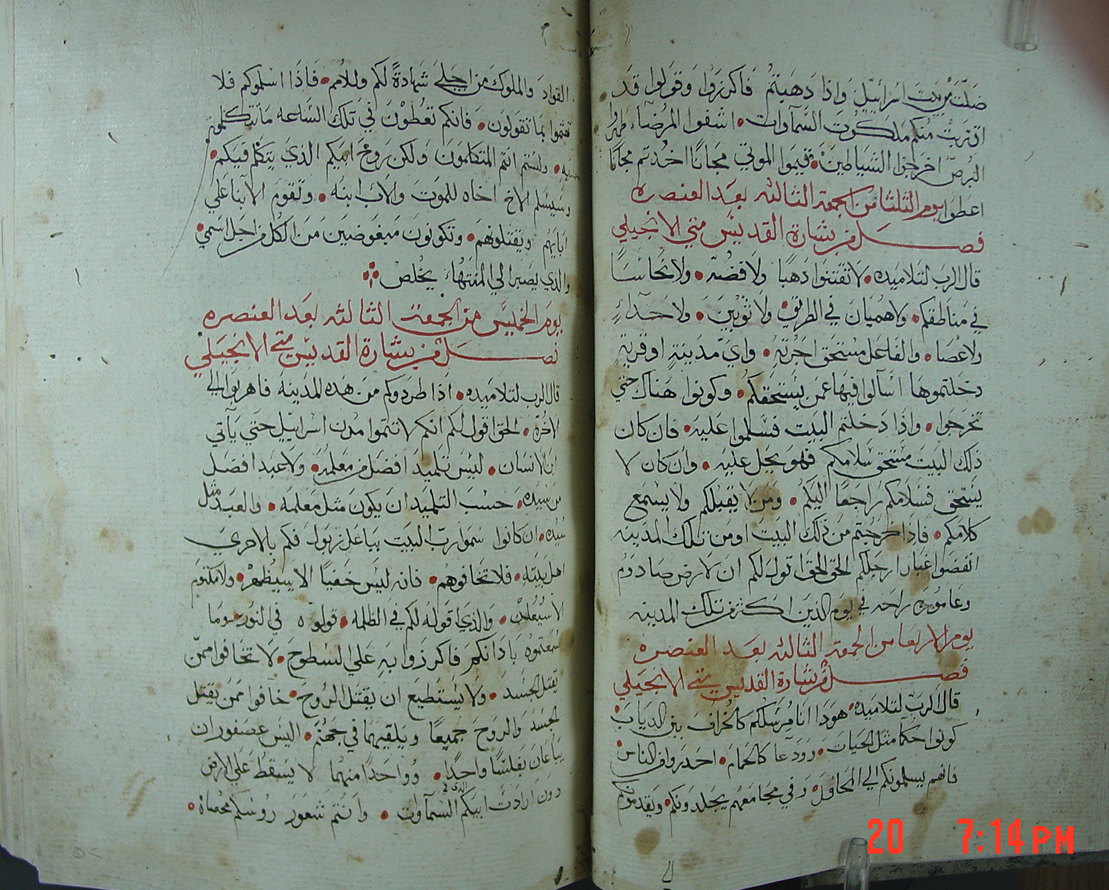 ضلت من بيت اسراييل واذا ذهبتم فاكرزوا وقولوا قد
اقتربت منكم ملكوت السماوات • اشفوا المرضا طهروا
البرص اخرجوا الشياطين • قيموا الموتي مجانا اخذتم مجانا
اعطوا يوم الثلثا من الجمعة الثالثه بعد العنصره
فصل من بشارة القديس متي الانجيلي
قال الرب لتلاميذه • لا تقتنوا ذهبا ولا فضه • ولا نحاسا
في مناطقكم • ولا هميان في الطريق • ولا ثوبين • ولا حذاء
ولا عصا • والفاعل مستحق اجرته • واي مدينة او قرية
دخلتموها اسالوا فيها عمن يستحقكم • وكونوا هناك حتي
تخرجوا • واذا دخلتم البيت فسلموا عليه • فان كان
ذلك البيت مستحق سلامكم فهو يحل عليه • وان كان لا
يستحق فسلامكم راجعا اليكم • ومن لا يقبلكم ولا يسمع
كلامكم • فاذا خرجتم من ذلك البيت او من تلك المدينه
انفضوا غبار ارجلكم الحق الحق اقول لكم ان لارض صادوم
وعامورة راحة في يوم الدين اكثر من تلك المدينه
يوم الاربعا من الجمعة الثالثه بعد العنصره
فصل من بشارة القديس متي الانجيلي
قال الرب لتلاميذه • هوذا انا مرسلكم كالخراف بين الدياب
كونوا حكما مثل الحيات • وودعا كالحمام • احدروا من الناس
فانهم يسلمونكم الي المحافل • وفي مجامعهم يجلدونكم • ويقدموكم
القواد والملوك من اجلي شهادة لكم وللامم • فاذا اسلموكم فلا
تهتموا بما تقولون • فانكم تعطون في تلك الساعه ما تتكلمون
به • ولستم انتم المتكلمون ولكن روح ابيكم الذي يتكلم فيكم •
وسيسلم الاخ اخاه للموت والاب ابنه • وتقوم الابنا علي
ابايهم ويقتلونهم • وتكونون مبغوضين من الكل من اجل اسمي •
والذي يصبر الي المنتها يخلص
يوم الخميس من الجمعة الثالثه بعد العنصره
فصل من بشارة القديس متي الانجيلي
قال الرب لتلاميذه • اذا طردوكم من هذه المدينه فاهربوا الي
الاخره • الحق اقول لكم انكم لا تتموا مدن اسراييل حتي ياتي
ابن الانسان • ليس تلميذ افضل من معلمه • ولا عبد افضل
من سيده • حسب التلميذ ان يكون مثل معلمه • والعبد مثل
سيده • ان كانوا سموا رب البيت بباعل زبول فكم بالاحري
اهل بيته • فلا تخافوهم • فانه ليس خفيا الا سيظهر • ولا مكتوم
الا سيعلن • والذي اقوله لكم في الظلمه • قولوه في النور وما
سمعتموه بادانكم فاكرزوا به علي السطوح • لا تخافوا ممن
يقتل الجسد • ولا يستطيع ان يقتل الروح • خافوا ممن يقتل
الجسد والروح جميعا ويلقيهما في جهنم • اليس عصفوران
يباعان بفلسا واحدا • وواحدا منهما لا يسقط علي الارض
دون ارادت ابيكم الذي في السماوات • وانتم شعور روسكم محصاة •
20 7:14 PM